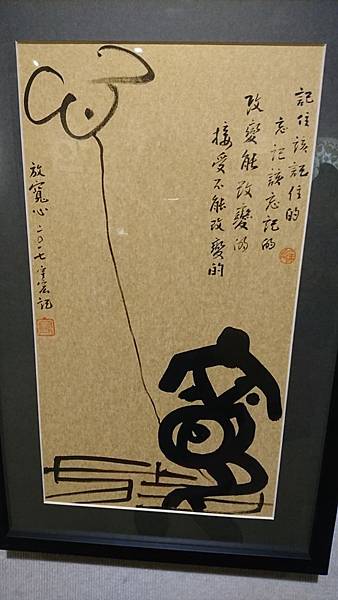 記住該記住的
忘記該忘記的
改變能改變的
接受不能改變的
放寬心 二〇一七年 記